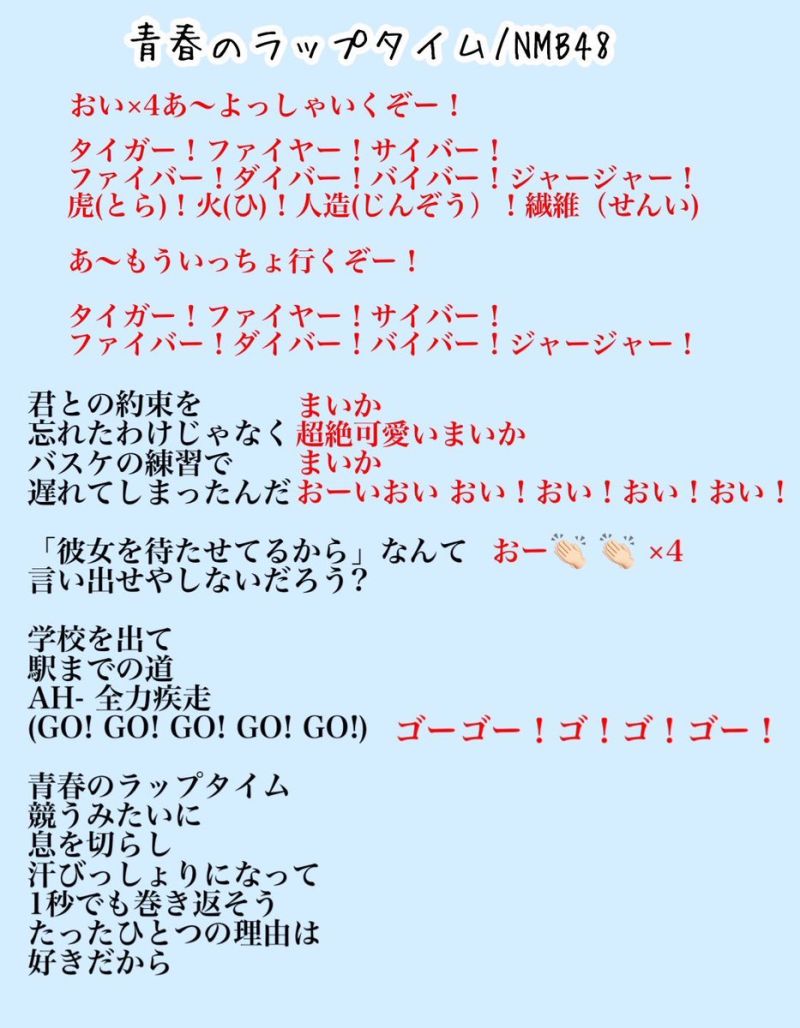 青春のラップタイム/NMB48
おい×4あ〜よっしゃいくぞー！
タイガー！ファイヤー！サイバー！
ファイバー！ダイバー！バイバー！ジャージャー！
虎(とら)！火(ひ)！人造(じんぞう）！繊維（せんい)
あ〜もういっちょ行くぞー！
タイガー！ファイヤー！サイバー！
ファイバー！ダイバー！バイバー！ジャージャー！
君との約束を まいか
忘れたわけじゃなく 超絶可愛いまいか
バスケの練習で まいか
遅れてしまったんだ おーいおい おい！おい！おい！おい！
「彼女を待たせてるから」なんて おー👏🏻 👏🏻 ×4
言い出せやしないだろう?
学校を出て
駅までの道
AH- 全力疾走
(GO! GO! GO! GO! GO!) ゴーゴー！ゴ！ゴ！ゴー！
青春のラップタイム
競うみたいに
息を切らし
汗びっしょりになって
1秒でも巻き返そう
たったひとつの理由は
好きだから